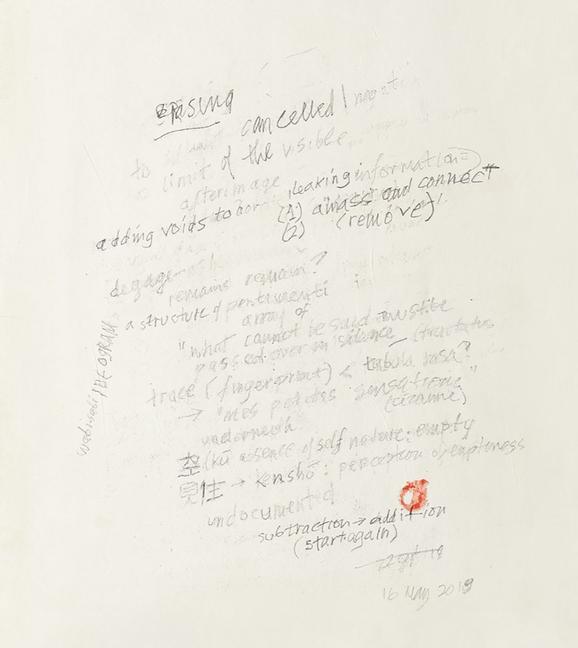 erasing
cancelled / negati
to
limit of the visible
afterimage
leaking information
adding voids to
(1) amass and connect
(2) (remove)
degage
remains remain?
a structure of pentimenti
array of
"what cannot be said must be
passed over in silence (tractatus
trace (fingerprint) < tabula rasa?
→ "mes petites sensations"
(cézanne)
underneath
空 (kū absence of self nature: empty
見性 → kenshō: perception of emptiness
undocumented
subtraction → addition
(start again)
16 May 2019
IDEOGRAM